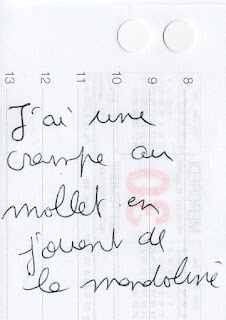 13 12 11 10 9 8
J'ai une
crampe au
mollet en
jouant de
la mandoline
30